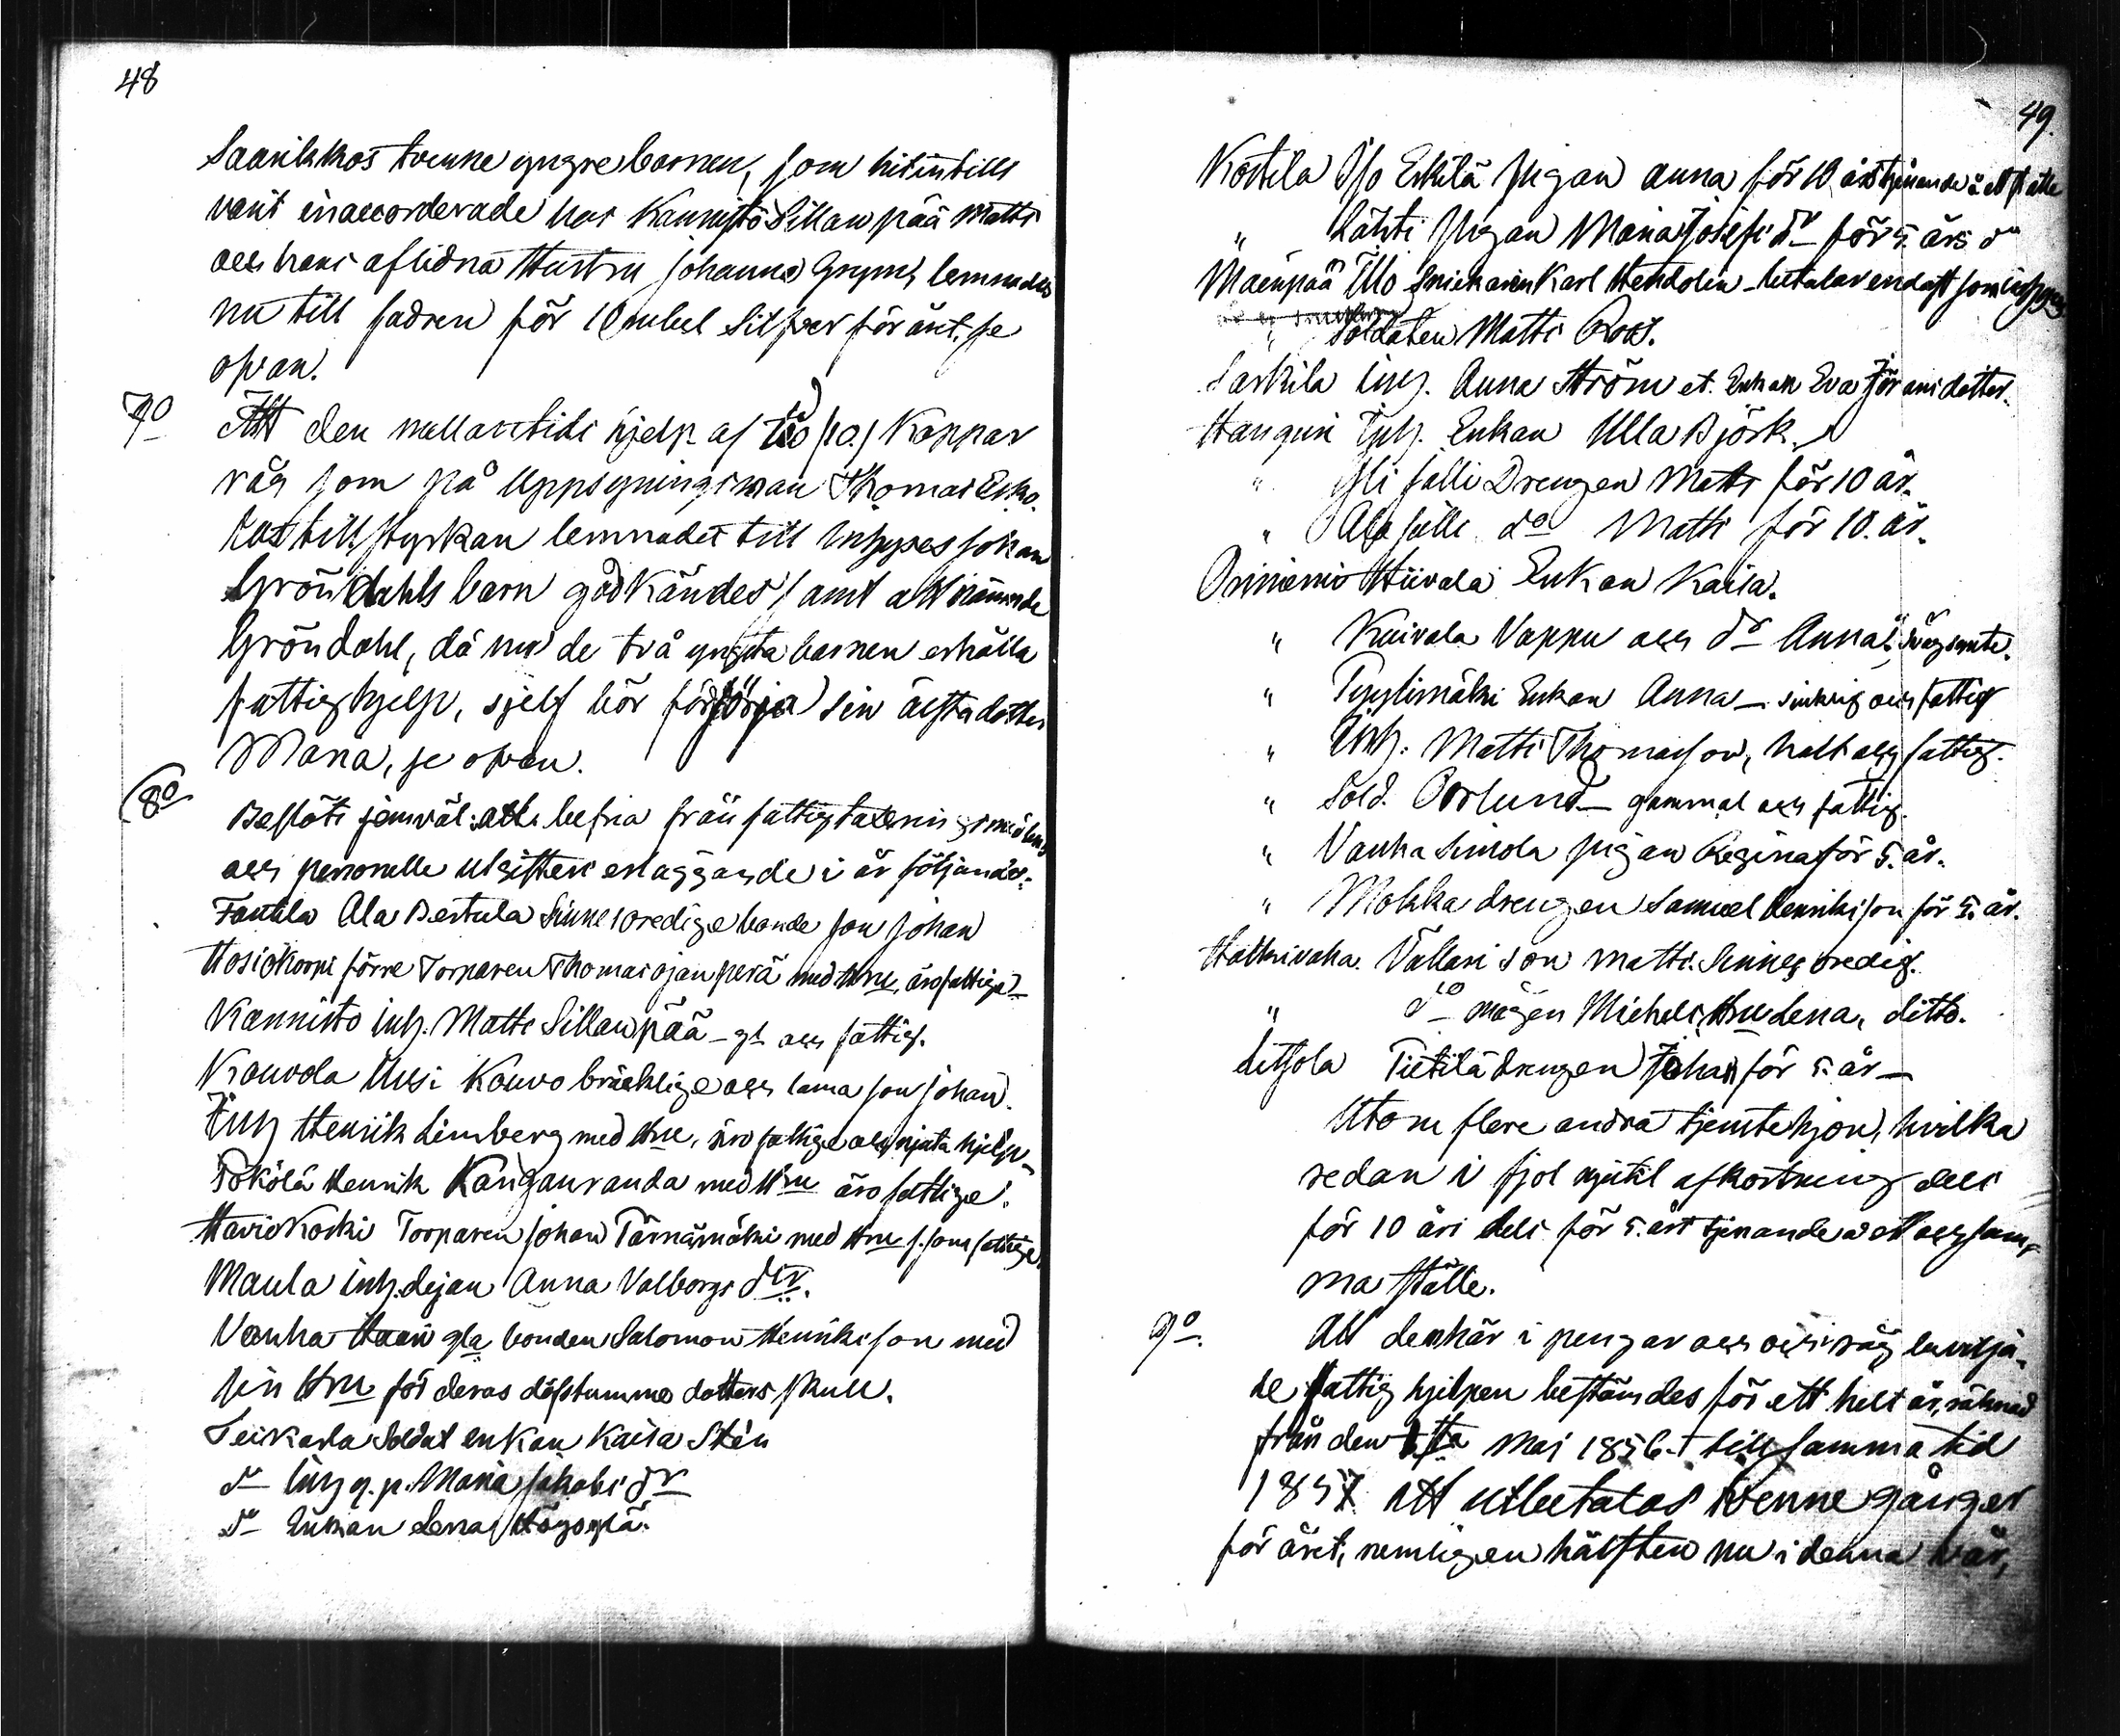 48
Saarikkos tvenne yngre barnen, som hitintills
varit inaccorderade hos Kannisto Sillanpää Matts
och hans aflidna Hustru Johanna Grym, lemnades
nu till fadren för 10 rubel Silfver för året, se
ofvan.
7o Att den mellantids hjelp af tio (10) Kappar
råg som på Uppsyningsman Thomas Esko-
las tillstyrkan lemnades till Inhyses Johan
Gröndahls barn godkändes, samt att nämnde
Gröndahl, då nu de två yngsta barnen erhålla
fattighjelp, sjelf bör försörja sin älsta dotter
Maria, se ofvan.
8o Beslöts jemväl att befria från fattigtaxerings
och personelle utgifters erläggande i år följande:
Fantila Ala Bertula Sinnesoredige bonde son Johan
Hosiokorpi förre Torparen Thomas Ojanperä med Hru, äro fattige
Kannisto Inh. Matts Sillanpää - gl och fattig.
Kouvola Uusi Kouvo bräcklige och lama son Johan.
Inh Henrik Limberg med Hru, äro fattige och njuta hjelp
Pokölä Henrik Kanganranda med Hru äro fattige.
Haviokoski Torparen Johan Tärnämäki med Hru s. som fattige
Maula Inh. dejan Anna Valborgs dtr.
Vanha Haari gla bonden Salomon Henriksson med
sin Hru för deras döfstumma dotters skull.
Seikarla Soldat enkan Kaisa Stén
do Inh q. p. Maria Jakobs dr
do Enkan Lena Högoglä.
49.
Kortila Iso Erkilä Pigan Anna för 10 års tjenande å ett ställe
" Lähti Pigan Maria Josefs dr för 5 års do
Mäenpää Ulo Snickaren Karl Hendolin - betalar endast som inhyses
" Soldaten Matts Roos.
Sarkila Inh. Anna Ström et. Enkan Eva Göransdotter.
Hangusi Inh. Enkan Ulla Björk.
" Yli Jälli Drengen Matts för 10 år.
" Ala Jälli do Matti för 10. år.
Orinieni Hiivala Enkan Kaisa.
" Kuivala Vappu och dr Anna
" Tyylimäki Enkan Anna - sinkrig och fattig
" Inh. Matti Thomasson, halt och fattig.
" Sold. Orrlund - gammal och fattig.
" Vanha Simola pigan Regina för 5. år.
" Mokka drengen Samuel Henriksson för 5. år.
Halkivaha. Vallari son Matts. Sinnesoredig.
" do mågen Michels Hru Lena, ditto.
Litsola Tietilä drengen Johan för 5. år -
Utom flere andra tjenstehjon, hvilka
redan i fjol njutit afkortning dels
för 10 års dels för 5. års tjenande å ett och sam-
ma ställe.
9o. Att denhär i pengar och råg bevilja-
de fattig hjelpen bestämdes för ett helt år, räknad
från den 1sta Maj 1856 till samma tid
1857 att utbetalas tvenne gånger
för året, nemligen hälften nu i denna vår,